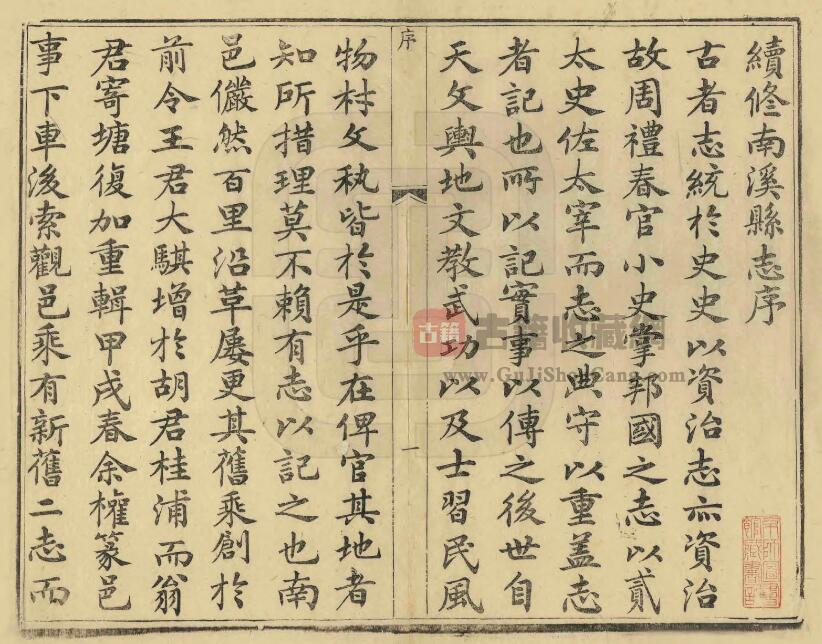 續修南溪縣志序
古者志統於史史以資治志亦資治
故周禮春官小史掌邦國之志以貳
太史佐太宰而志之典守以重蓋志
者記也所以記實事以傳之後世自
天文輿地文教武功以及士習民風
序
一
物材文秇皆於是乎在俾官其地者
知所措理莫不賴有志以記之也南
邑儼然百里沿革屢更其舊乘創於
前令王君大騏增於胡君桂浦而翁
君寄塘復加重輯甲戌春余權篆邑
事下車後索觀邑乘有新舊二志而
古籍
古籍收藏網
www.GuJiShouCang.com